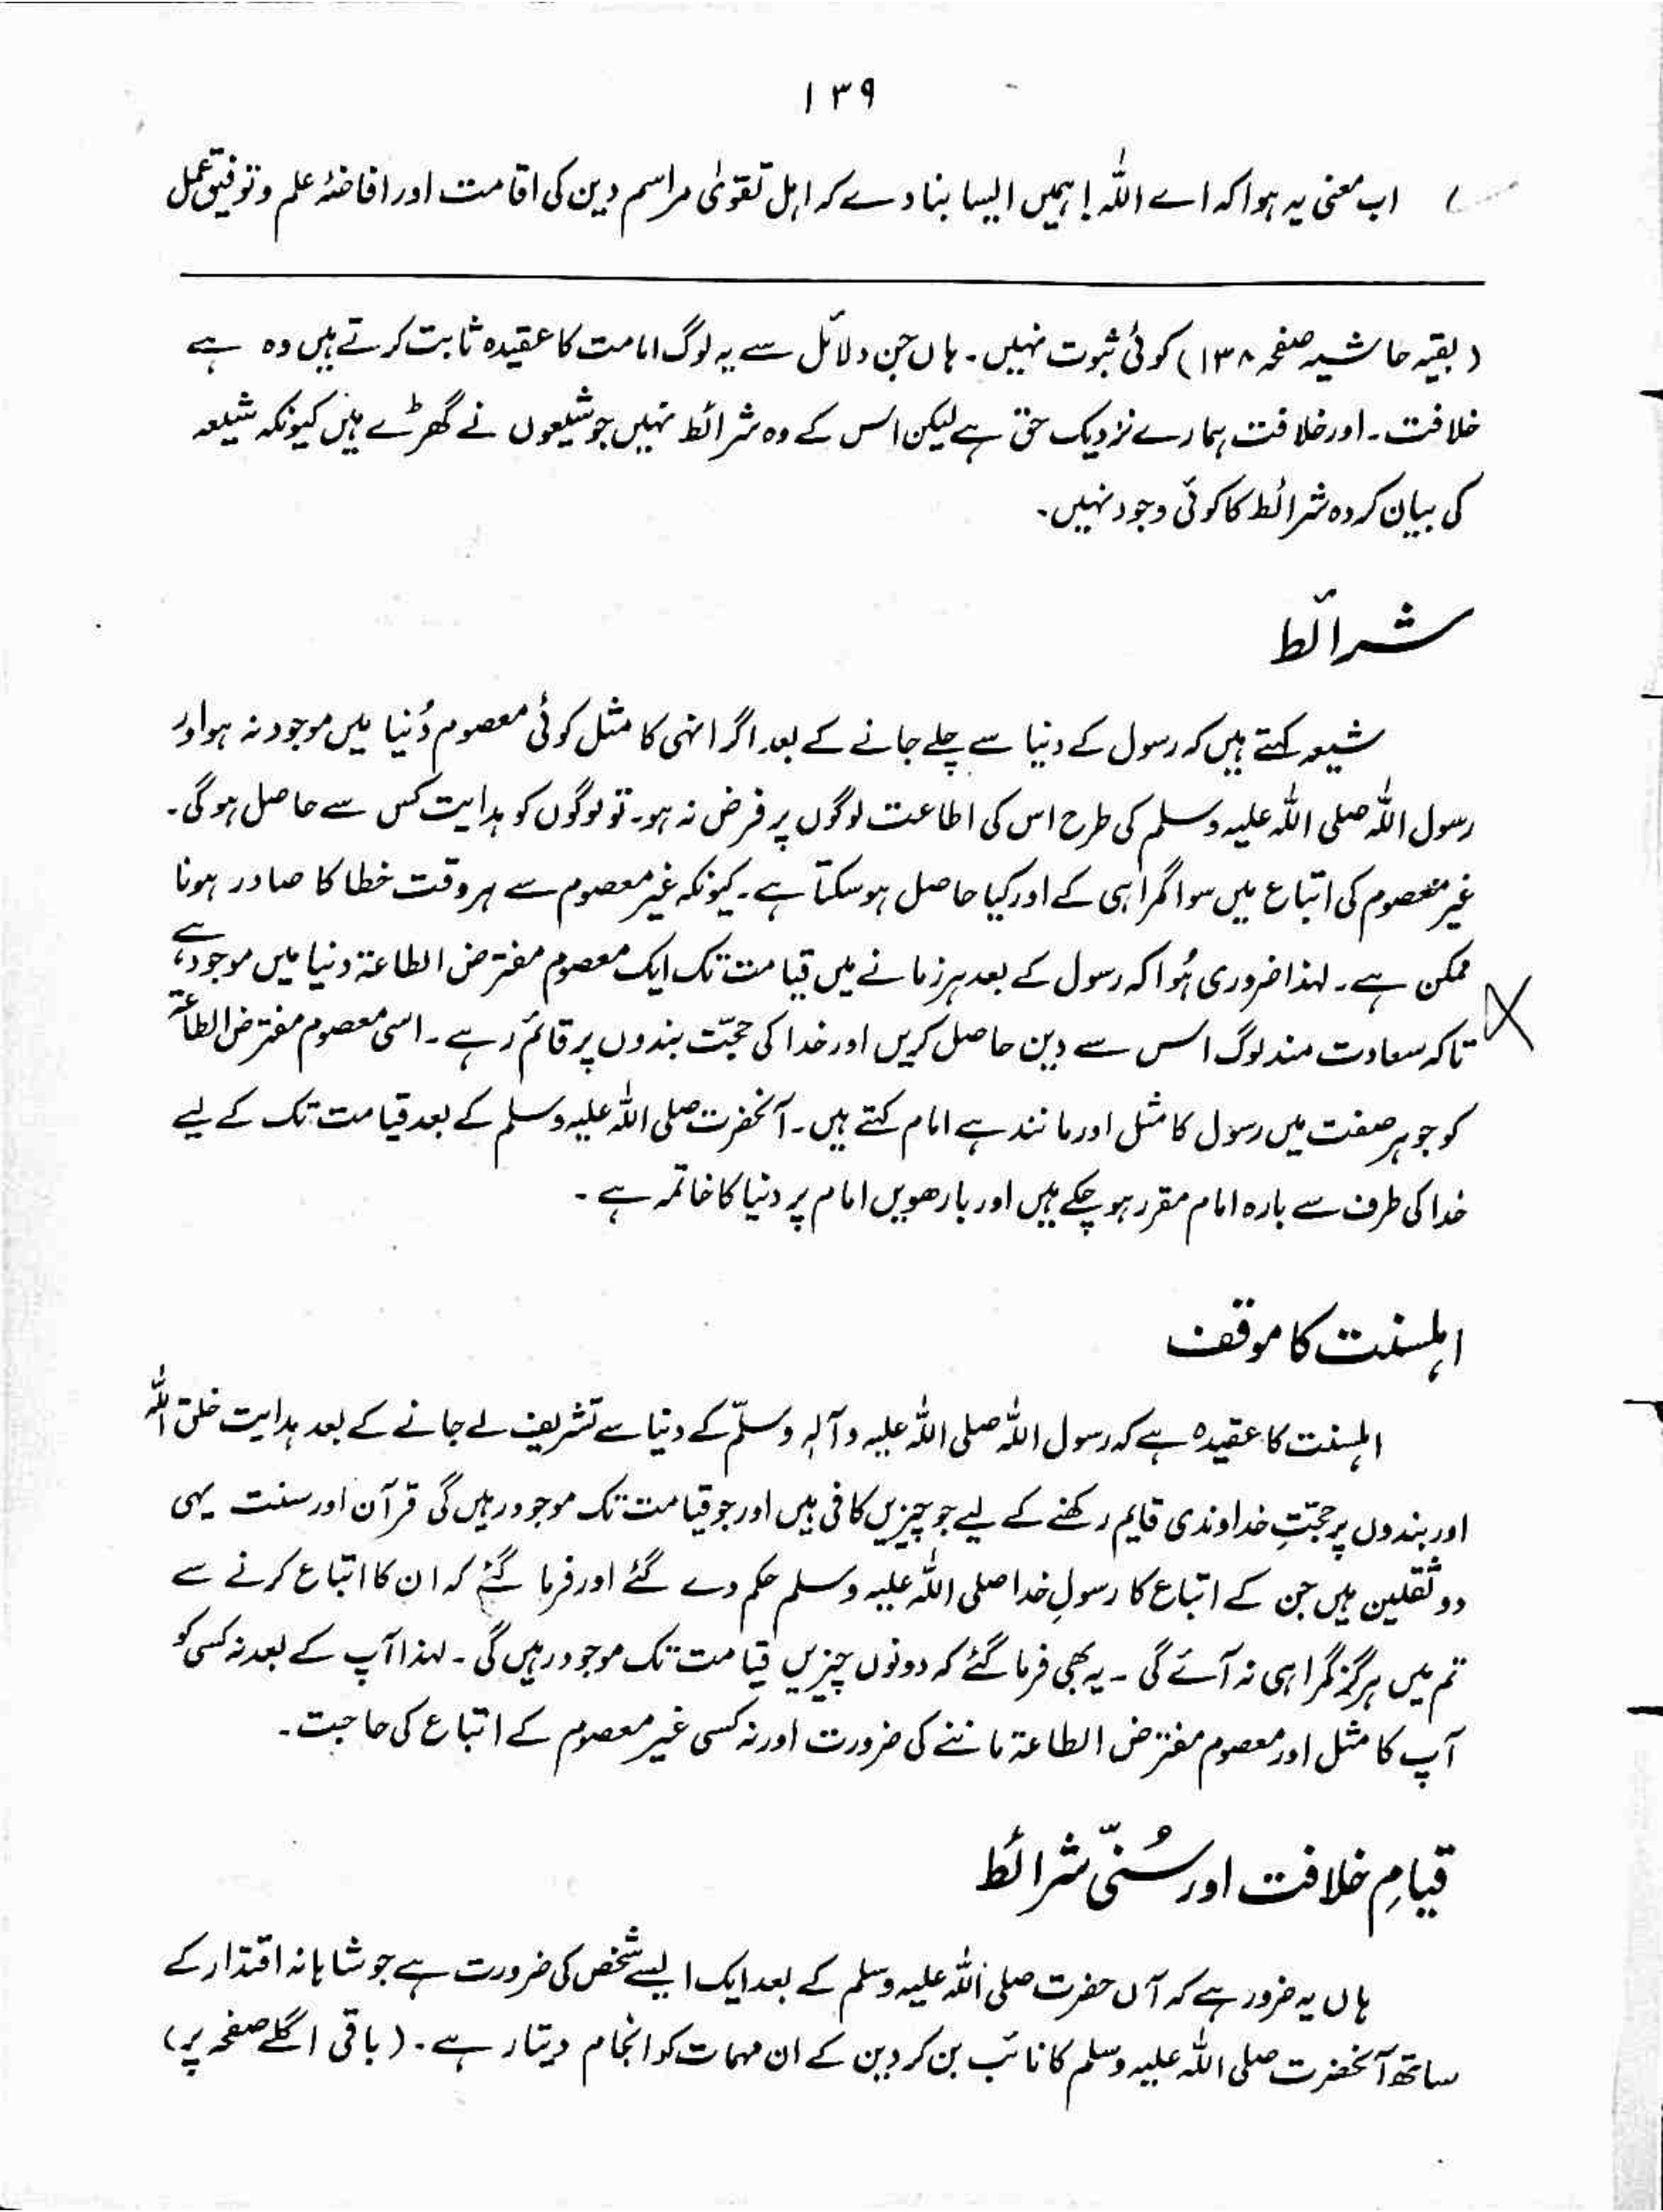 ۱۳۹
اب معنی یہ ہوا کہ اے اللہ! ہمیں ایسا بنا دے کہ اہل تقویٰ مراسم دین کی اقامت اور افاضۂ علم و توفیق عمل
(بقیہ حاشیہ صفحہ ۱۳۸) کوئی ثبوت نہیں۔ ہاں جن دلائل سے یہ لوگ امامت کا عقیدہ ثابت کرتے ہیں وہ ہے
خلافت۔ اور خلافت ہمارے نزدیک حق ہے لیکن اس کے وہ شرائط نہیں جو شیعوں نے گھڑے ہیں کیونکہ شیعہ
کی بیان کردہ شرائط کا کوئی وجود نہیں۔
شرائط
شیعہ کہتے ہیں کہ رسول کے دنیا سے چلے جانے کے بعد اگر انہی کا مثل کوئی معصوم دُنیا میں موجود نہ ہو اور
رسول اللہ صلی اللہ علیہ وسلم کی طرح اس کی اطاعت لوگوں پر فرض نہ ہو۔ تو لوگوں کو ہدایت کس سے حاصل ہو گی۔
غیر معصوم کی اتباع میں سوا گمراہی کے اور کیا حاصل ہو سکتا ہے۔ کیونکہ غیر معصوم سے ہر وقت خطا کا صادر ہونا
ممکن ہے۔ لہذا ضروری ہُوا کہ رسول کے بعد ہر زمانے میں قیامت تک ایک معصوم مفترض الطاعۃ دنیا میں موجود ہے،
تاکہ سعادت مند لوگ اس سے دین حاصل کریں اور خدا کی حجّت بندوں پر قائم رہے۔ اسی معصوم مفترض الطاعۃ
کو جو ہر صفت میں رسول کا مثل اور مانند ہے امام کہتے ہیں۔ آنحضرت صلی اللہ علیہ وسلم کے بعد قیامت تک کے لیے
خدا کی طرف سے بارہ امام مقرر ہو چکے ہیں اور بارھویں امام پر دنیا کا خاتمہ ہے۔
اہلسنت کا موقف
اہلسنت کا عقیدہ ہے کہ رسول اللہ صلی اللہ علیہ وآلہٖ وسلّم کے دنیا سے تشریف لے جانے کے بعد ہدایت خلق اللہ
اور بندوں پر حجّتِ خداوندی قایم رکھنے کے لیے جو چیزیں کافی ہیں اور جو قیامت تک موجود رہیں گی قرآن اور سنت یہی
دو ثقلین ہیں جن کے اتباع کا رسولِ خدا صلی اللہ علیہ وسلم حکم دے گئے اور فرما گئے کہ ان کا اتباع کرنے سے
تم میں ہرگز گمراہی نہ آئے گی۔ یہ بھی فرما گئے کہ دونوں چیزیں قیامت تک موجود رہیں گی۔ لہذا آپ کے بعد نہ کسی کو
آپ کا مثل اور معصوم مفترض الطاعۃ ماننے کی ضرورت اور نہ کسی غیر معصوم کے اتباع کی حاجت۔
قیامِ خلافت اور سُنّی شرائط
ہاں یہ ضرور ہے کہ آں حضرت صلی اللہ علیہ وسلم کے بعد ایک ایسے شخص کی ضرورت ہے جو شاہانہ اقتدار کے
ساتھ آنحضرت صلی اللہ علیہ وسلم کا نائب بن کر دین کے ان مہمات کو انجام دیتا رہے۔ (باقی اگلے صفحہ پر)